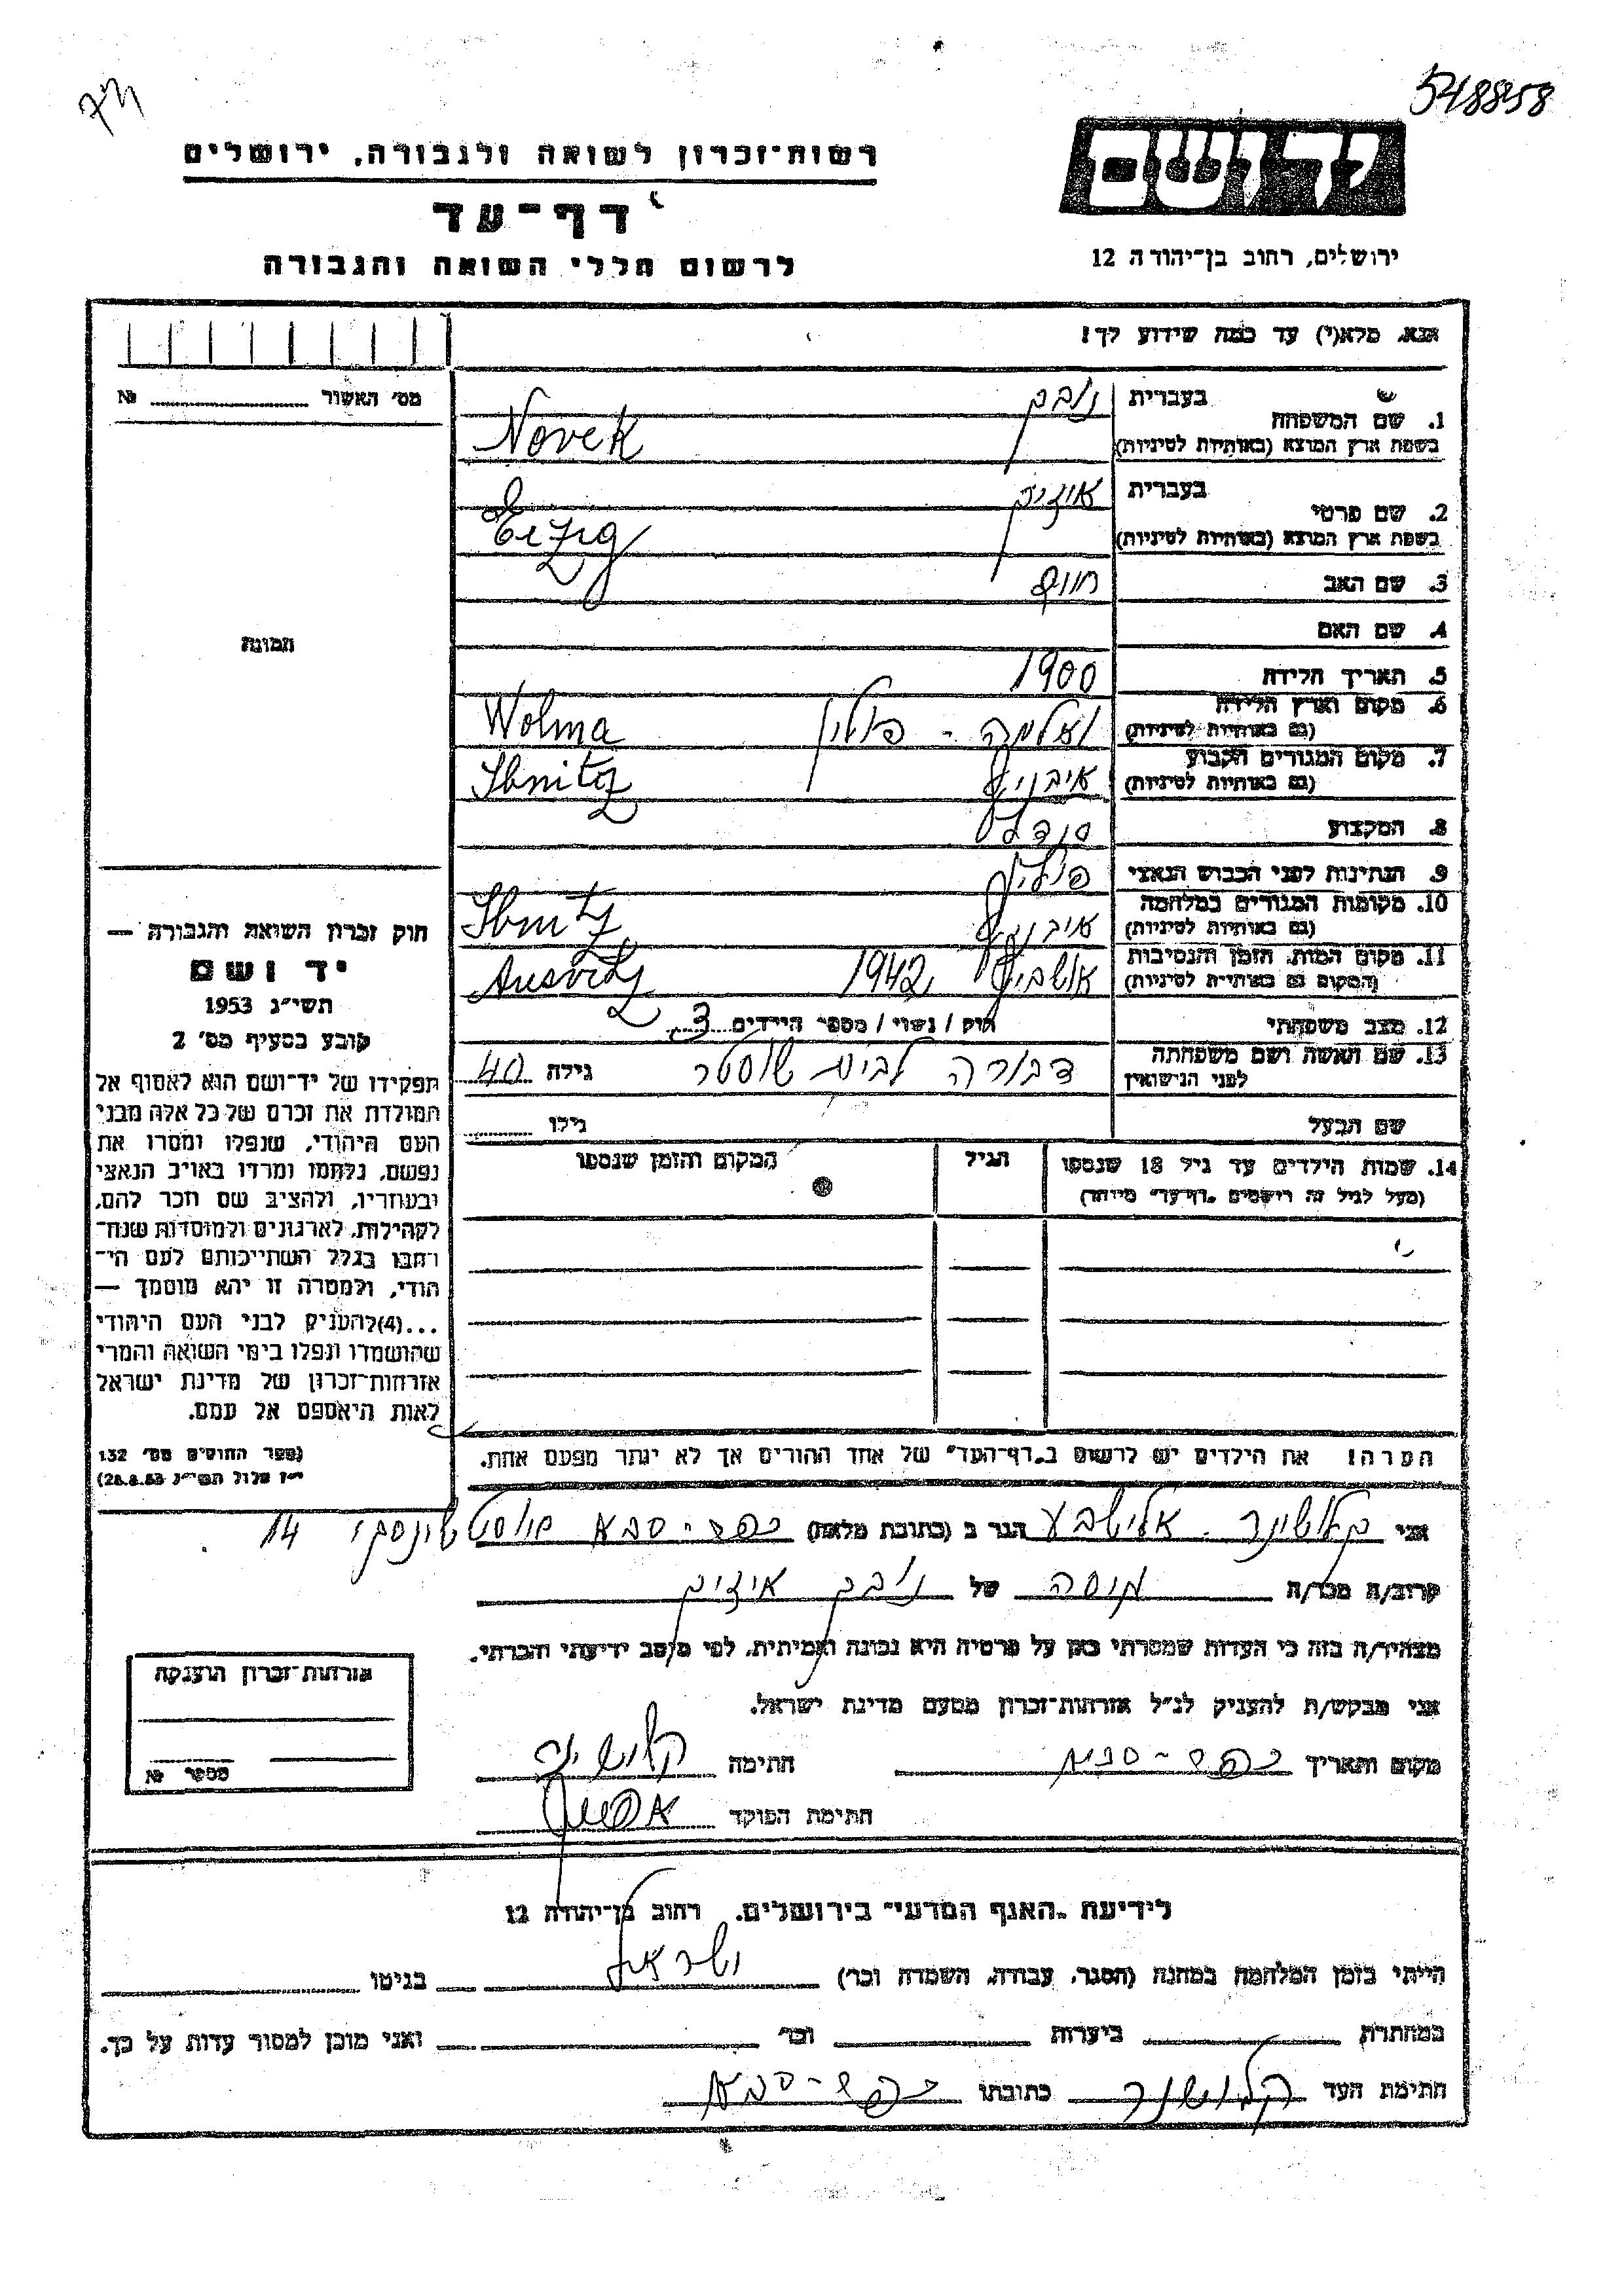 548858
יד ושם
ירושלים, רחוב בן־יהודה 12
רשות־זכרון לשואה ולגבורה, ירושלים
דף־עד
לרשום חללי השואה והגבורה
אנא, מלא(י) עד כמה שידוע לך!
מס׳ האשור № ........
1. שם המשפחה בעברית נובק
בשפת ארץ המוצא (באותיות לטיניות) Novek
2. שם פרטי בעברית איציק
בשפת ארץ המוצא (באותיות לטיניות) Eizig
3. שם האב
4. שם האם
5. תאריך הלידה 1900
6. מקום וארץ הלידה (גם באותיות לטיניות) וולמה - פולין Wolma
7. מקום המגורים הקבוע (גם באותיות לטיניות) איבניץ Ibnitz
8. המקצוע סנדלר
9. הנתינות לפני הכבוש הנאצי פולין
10. מקומות המגורים במלחמה (גם באותיות לטיניות) איבניץ Ibnitz
11. מקום המות, הזמן והנסיבות (המקום גם באותיות לטיניות) אושביץ 1942 Ausvitz
12. מצב משפחתי רווק / נשוי / מספר הילדים 3
13. שם האשה ושם משפחתה לפני הנישואין דבורה לבית שוסטר גילה 40
שם הבעל גילו ........
14. שמות הילדים עד גיל 18 שנספו (מעל לגיל זה רושמים „דף־עד״ מיוחד) הגיל המקום והזמן שנספו
הערה! את הילדים יש לרשום ב„דף־העד״ של אחד ההורים אך לא יותר מפעם אחת.
תמונה
חוק זכרון השואה והגבורה —
יד ושם
תשי״ג 1953
קובע בסעיף מס׳ 2
תפקידו של יד־ושם הוא לאסוף אל
המולדת את זכרם של כל אלה מבני
העם היהודי, שנפלו ומסרו את
נפשם, נלחמו ומרדו באויב הנאצי
ובעוזריו, ולהציב שם וזכר להם,
לקהילות, לארגונים ולמוסדות שנח־
רבו בגלל השתייכותם לעם הי־
הודי, ולמטרה זו יהא מוסמך —
...(4) להעניק לבני העם היהודי
שהושמדו ונפלו בימי השואה והמרי
אזרחות־זכרון של מדינת ישראל
לאות היאספם אל עמם.
(ספר החוקים מס׳ 132
י״ז אלול תשי״ג 28.8.53)
אני קלושנר אלישבע הגר ב (כתובת מלאה) כפר - סבא 14
קרוב/ה מכר/ה של נובק איציק
מצהיר/ה בזה כי העדות שמסרתי כאן על פרטיה היא נכונה ואמיתית, לפי מיטב ידיעתי והכרתי.
אני מבקש/ת להעניק לנ״ל אזרחות־זכרון מטעם מדינת ישראל.
מקום ותאריך כפר - סבא חתימה קלושנר
חתימת הפוקד
אזרחות־זכרון הוענקה
מספר №
לידיעת „האגף המדעי״ בירושלים, רחוב בן־יהודה 12
הייתי בזמן המלחמה במחנה (הסגר, עבודה, השמדה וכו׳) ישראל בגיטו
במחתרת ביערות וכו׳ ואני מוכן למסור עדות על כך.
חתימת העד קלושנר כתובתו כפר - סבא